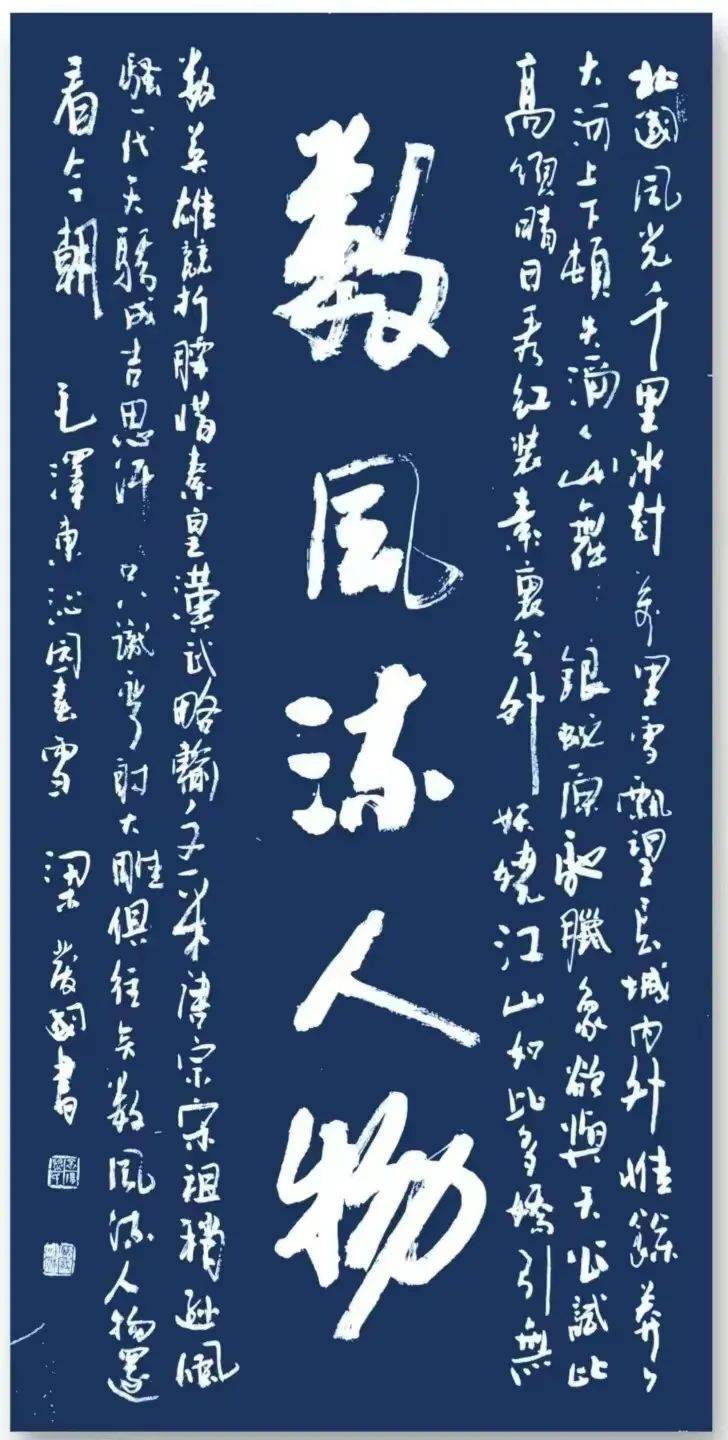 北國风光千里冰封万里雪飄望長城内外惟餘莽々
大河上下頓失滔々山舞銀蛇原馳臘象欲與天公試比
高須晴日看紅装素裹分外妖嬈江山如此多嬌引無
数风流人物
数英雄競折腰惜秦皇漢武略輸文采唐宗宋祖稍遜風
騷一代天驕成吉思汗只識彎射大雕俱往矣数风流人物還
看今朝 毛澤東沁园春雪 梁書